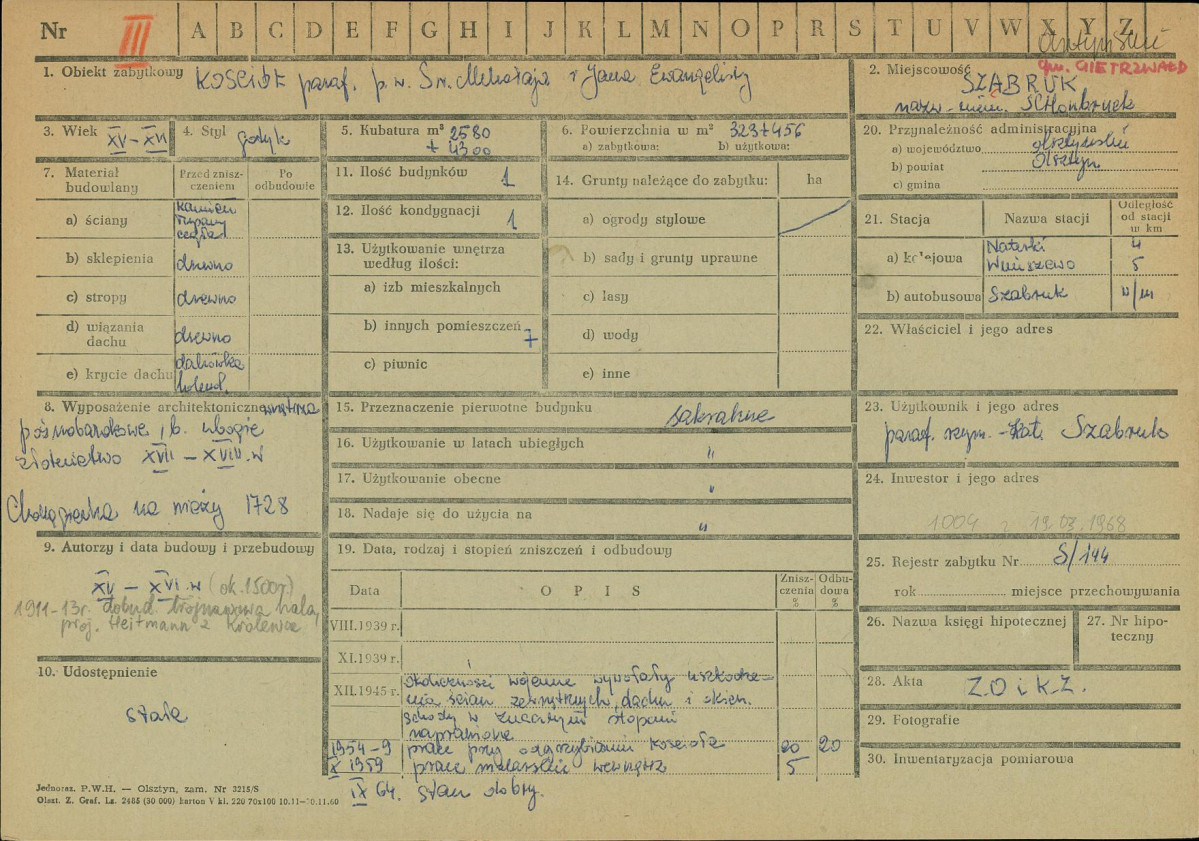 Nr III A B C D E F G H I J K L M N O P R S T U V W X Y Z
gm. GIETRZWAŁD
1. Obiekt zabytkowy KOŚCIÓŁ paraf. p.w. Św. Mikołaja i Jana Ewangelisty
2. Miejscowość SZĄBRUK
nazw. niem. Schönbruck
3. Wiek XV-XVI
4. Styl gotyk
5. Kubatura m³ 2580
+ 4300
6. Powierzchnia w m² 323+456
a) zabytkowa: b) użytkowa:
20. Przynależność administracyjna
a) województwo olsztyńskie
b) powiat Olsztyn
c) gmina
7. Materiał budowlany
Przed zniszczeniem
Po odbudowie
a) ściany kamień
cegła
b) sklepienia drewno
c) stropy drewno
d) wiązania dachu drewno
e) krycie dachu dachówka
holend.
11. Ilość budynków 1
12. Ilość kondygnacji 1
13. Użytkowanie wnętrza według ilości:
a) izb mieszkalnych
b) innych pomieszczeń 7
c) piwnic
14. Grunty należące do zabytku: ha
a) ogrody stylowe
b) sady i grunty uprawne
c) lasy
d) wody
e) inne
21. Stacja Nazwa stacji Odległość od stacji w km
a) kolejowa Naterki 4
Unieszewo 5
b) autobusowa Szabruk w/m
22. Właściciel i jego adres
8. Wyposażenie architektoniczne wnętrza
późnobarokowe, b. ubogie
złotnictwo XVII - XVIII w
Chorągiewka na wieży 1728
15. Przeznaczenie pierwotne budynku sakralne
16. Użytkowanie w latach ubiegłych "
17. Użytkowanie obecne "
18. Nadaje się do użycia na "
23. Użytkownik i jego adres
paraf. rzym.-kat. Szabruk
24. Inwestor i jego adres
1004 z 19.03.1968
9. Autorzy i data budowy i przebudowy
XV - XVI w (ok. 1500 r.)
1911-13 r. dobud. trójnawowa hala,
proj. Heitmann z Królewca
19. Data, rodzaj i stopień zniszczeń i odbudowy
Data OPIS Zniszczenia % Odbudowa %
VIII.1939 r.
XI.1939 r.
XII.1945 r. okoliczności wojenne wywołały uszkodze-
nia ścian zewnętrznych, dachu i okien.
szkody w znacznym stopniu
naprawione
1954-9 prace przy odgrzybianiu kościoła 20 20
X 1959 prace malarskie wewnątrz 5
IX 64. stan dobry.
25. Rejestr zabytku Nr S/144
rok miejsce przechowywania
26. Nazwa księgi hipotecznej
27. Nr hipoteczny
10. Udostępnienie
stałe
28. Akta Z.O i K.Z.
29. Fotografie
30. Inwentaryzacja pomiarowa
Jednoraz. P.W.H. — Olsztyn, zam. Nr 3215/S
Olszt. Z. Graf. Lz. 2485 (30 000) karton V kl. 220 70x100 10.11—30.11.60